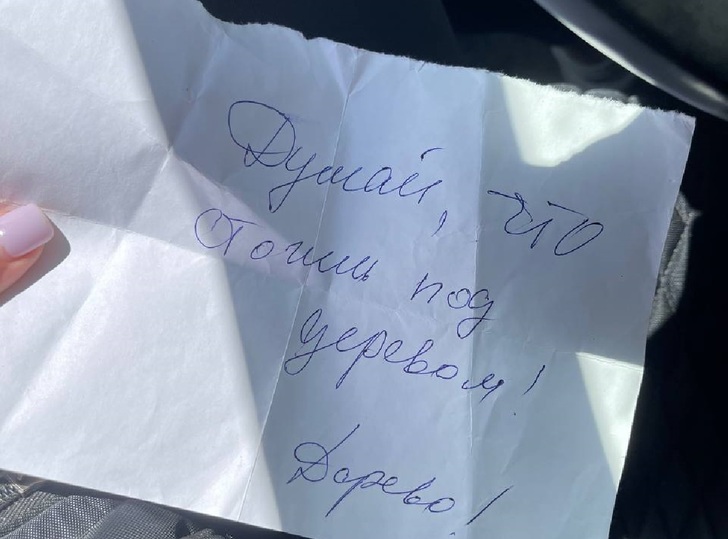 Думай, что
стоишь под
деревом!
Дорево!